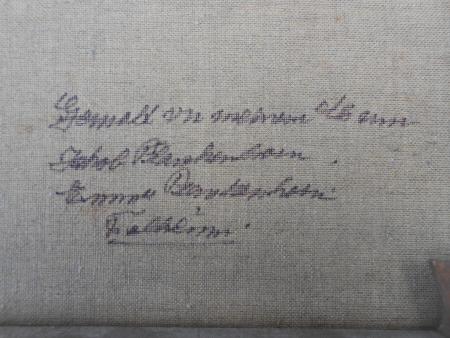 Gemalt vn meinem Mann
Jakob Blankenhorn.
Emma Blankenhorn